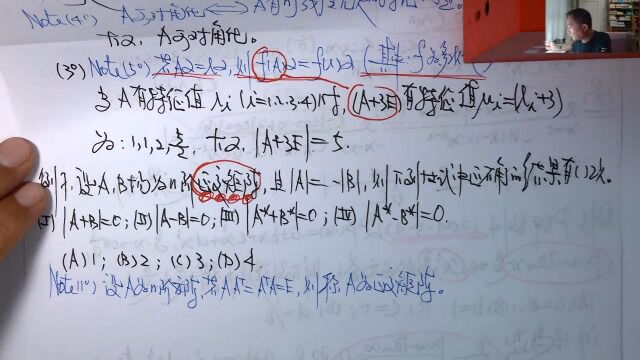 Note(4°) A可对角化 ⟺ A有n个线性无关
故, A可对角化。
(3°) Note(5°) 若Aα=λα, 则 f(A)α=f(λ)α (其中 f 为多项式)
当A有特征值 λi (i=1,2,3,4)时, (A+3E)有特征值 μi=(λi+3)
为: 1,1,2,5/2, 故, |A+3E|=5.
例 设A,B均为n阶正交矩阵, 且|A|=-|B|, 则下列式中正确的结果有( )个.
(I) |A+B|=0; (II) |A-B|=0; (III) |A*+B*|=0; (IV) |A*-B*|=0.
(A) 1; (B) 2; (C) 3; (D) 4.
Note(1°) 设A为n阶方阵, 若AAᵀ=AᵀA=E, 则称A为正交矩阵。